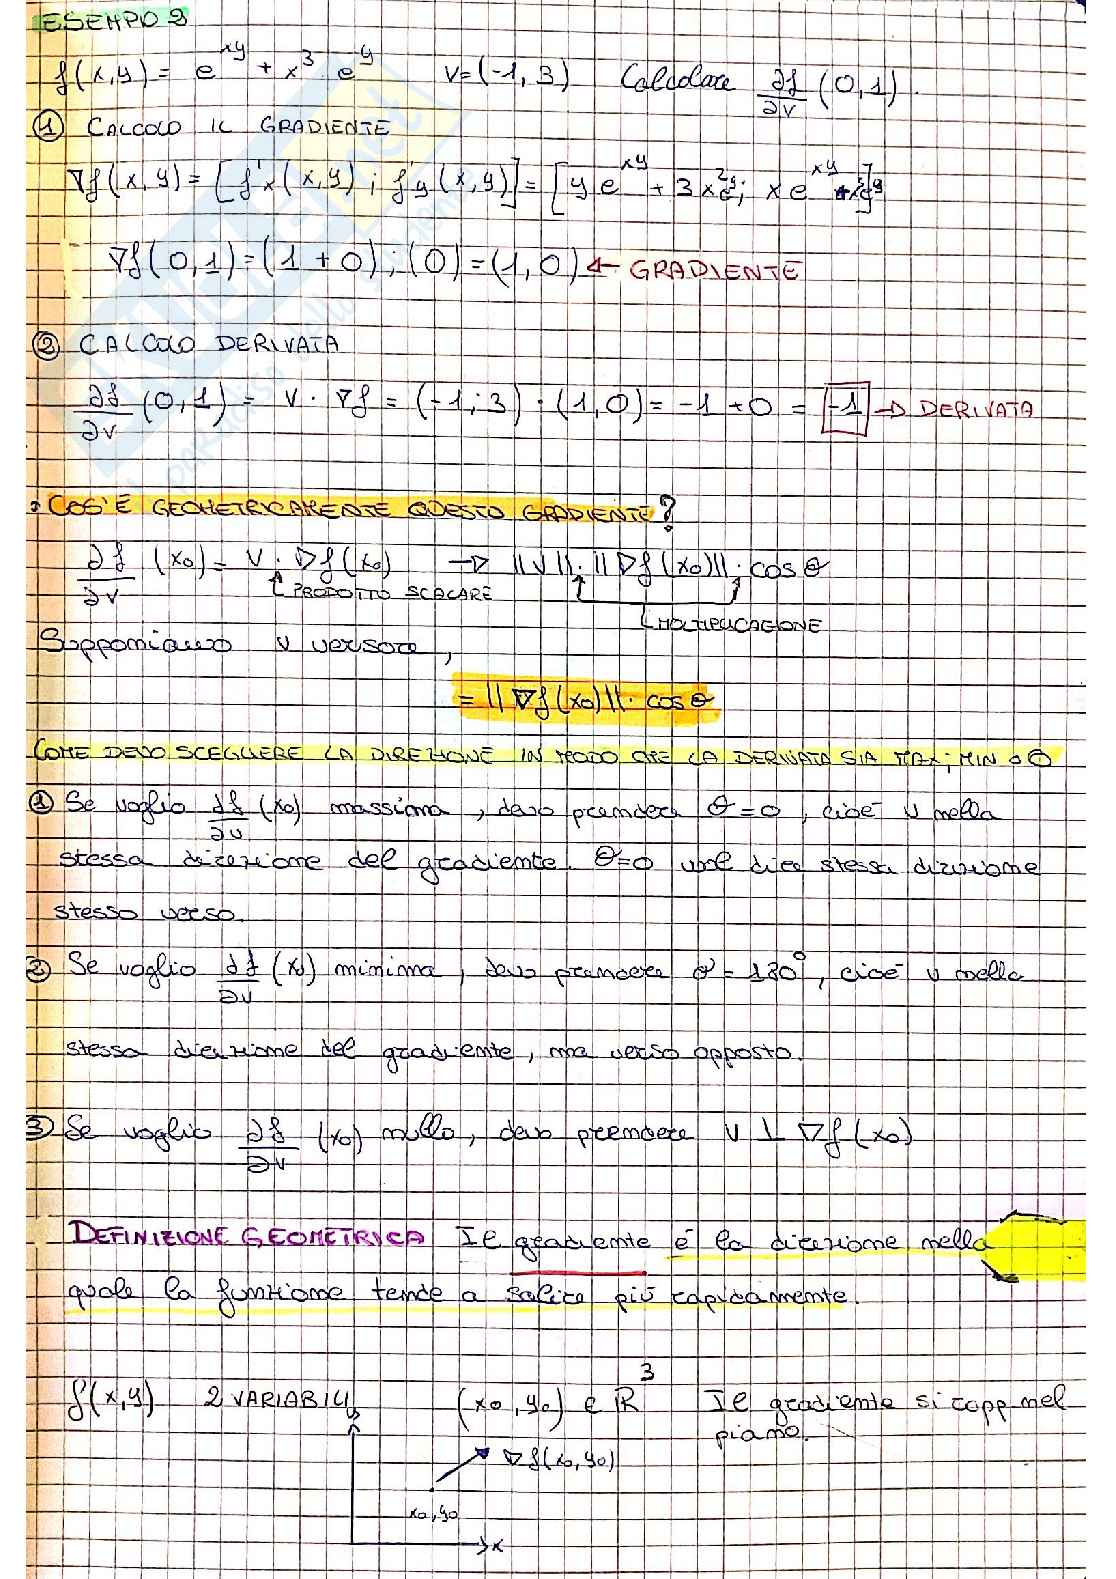 ESEMPIO 2
f(x,y) = e^{xy} + x^3 · e^y V=(-1,3) Calcolare ∂f/∂v (0,1).
① CALCOLO IL GRADIENTE
∇f(x,y) = [f'x(x,y) ; f'y(x,y)] = [y e^{xy} + 3x^2 e^y; x e^{xy} + x^3 e^y]
∇f(0,1) = (1+0) ; (0) = (1,0) ← GRADIENTE
② CALCOLO DERIVATA
∂f/∂v (0,1) = V · ∇f = (-1;3) · (1,0) = -1 + 0 = -1 → DERIVATA
: COS'È GEOMETRICAMENTE QUESTO GRADIENTE?
∂f/∂v (x0) = V · ∇f(x0) → ||V|| · ||∇f(x0)|| · cos θ
PRODOTTO SCALARE
MOLTIPLICAZIONE
Supponiamo v versore,
= ||∇f(x0)|| · cos θ
COME DEVO SCEGLIERE LA DIREZIONE IN MODO CHE LA DERIVATA SIA MAX; MIN o 0
① Se voglio ∂f/∂v (x0) massima, devo prendere θ=0, cioè v nella
stessa direzione del gradiente. θ=0 vuol dire stessa direzione
stesso verso.
② Se voglio ∂f/∂v (x0) minima, devo prendere θ = 180°, cioè v nella
stessa direzione del gradiente, ma verso opposto.
③ Se voglio ∂f/∂v (x0) nullo, devo prendere v ⊥ ∇f(x0)
DEFINIZIONE GEOMETRICA Il gradiente è la direzione nella
quale la funzione tende a salire più rapidamente.
f(x,y) 2 VARIABILI (x0,y0) ∈ R^3 Il gradiente si rapp. nel
piano.
y
∇f(x0,y0)
x0,y0
x